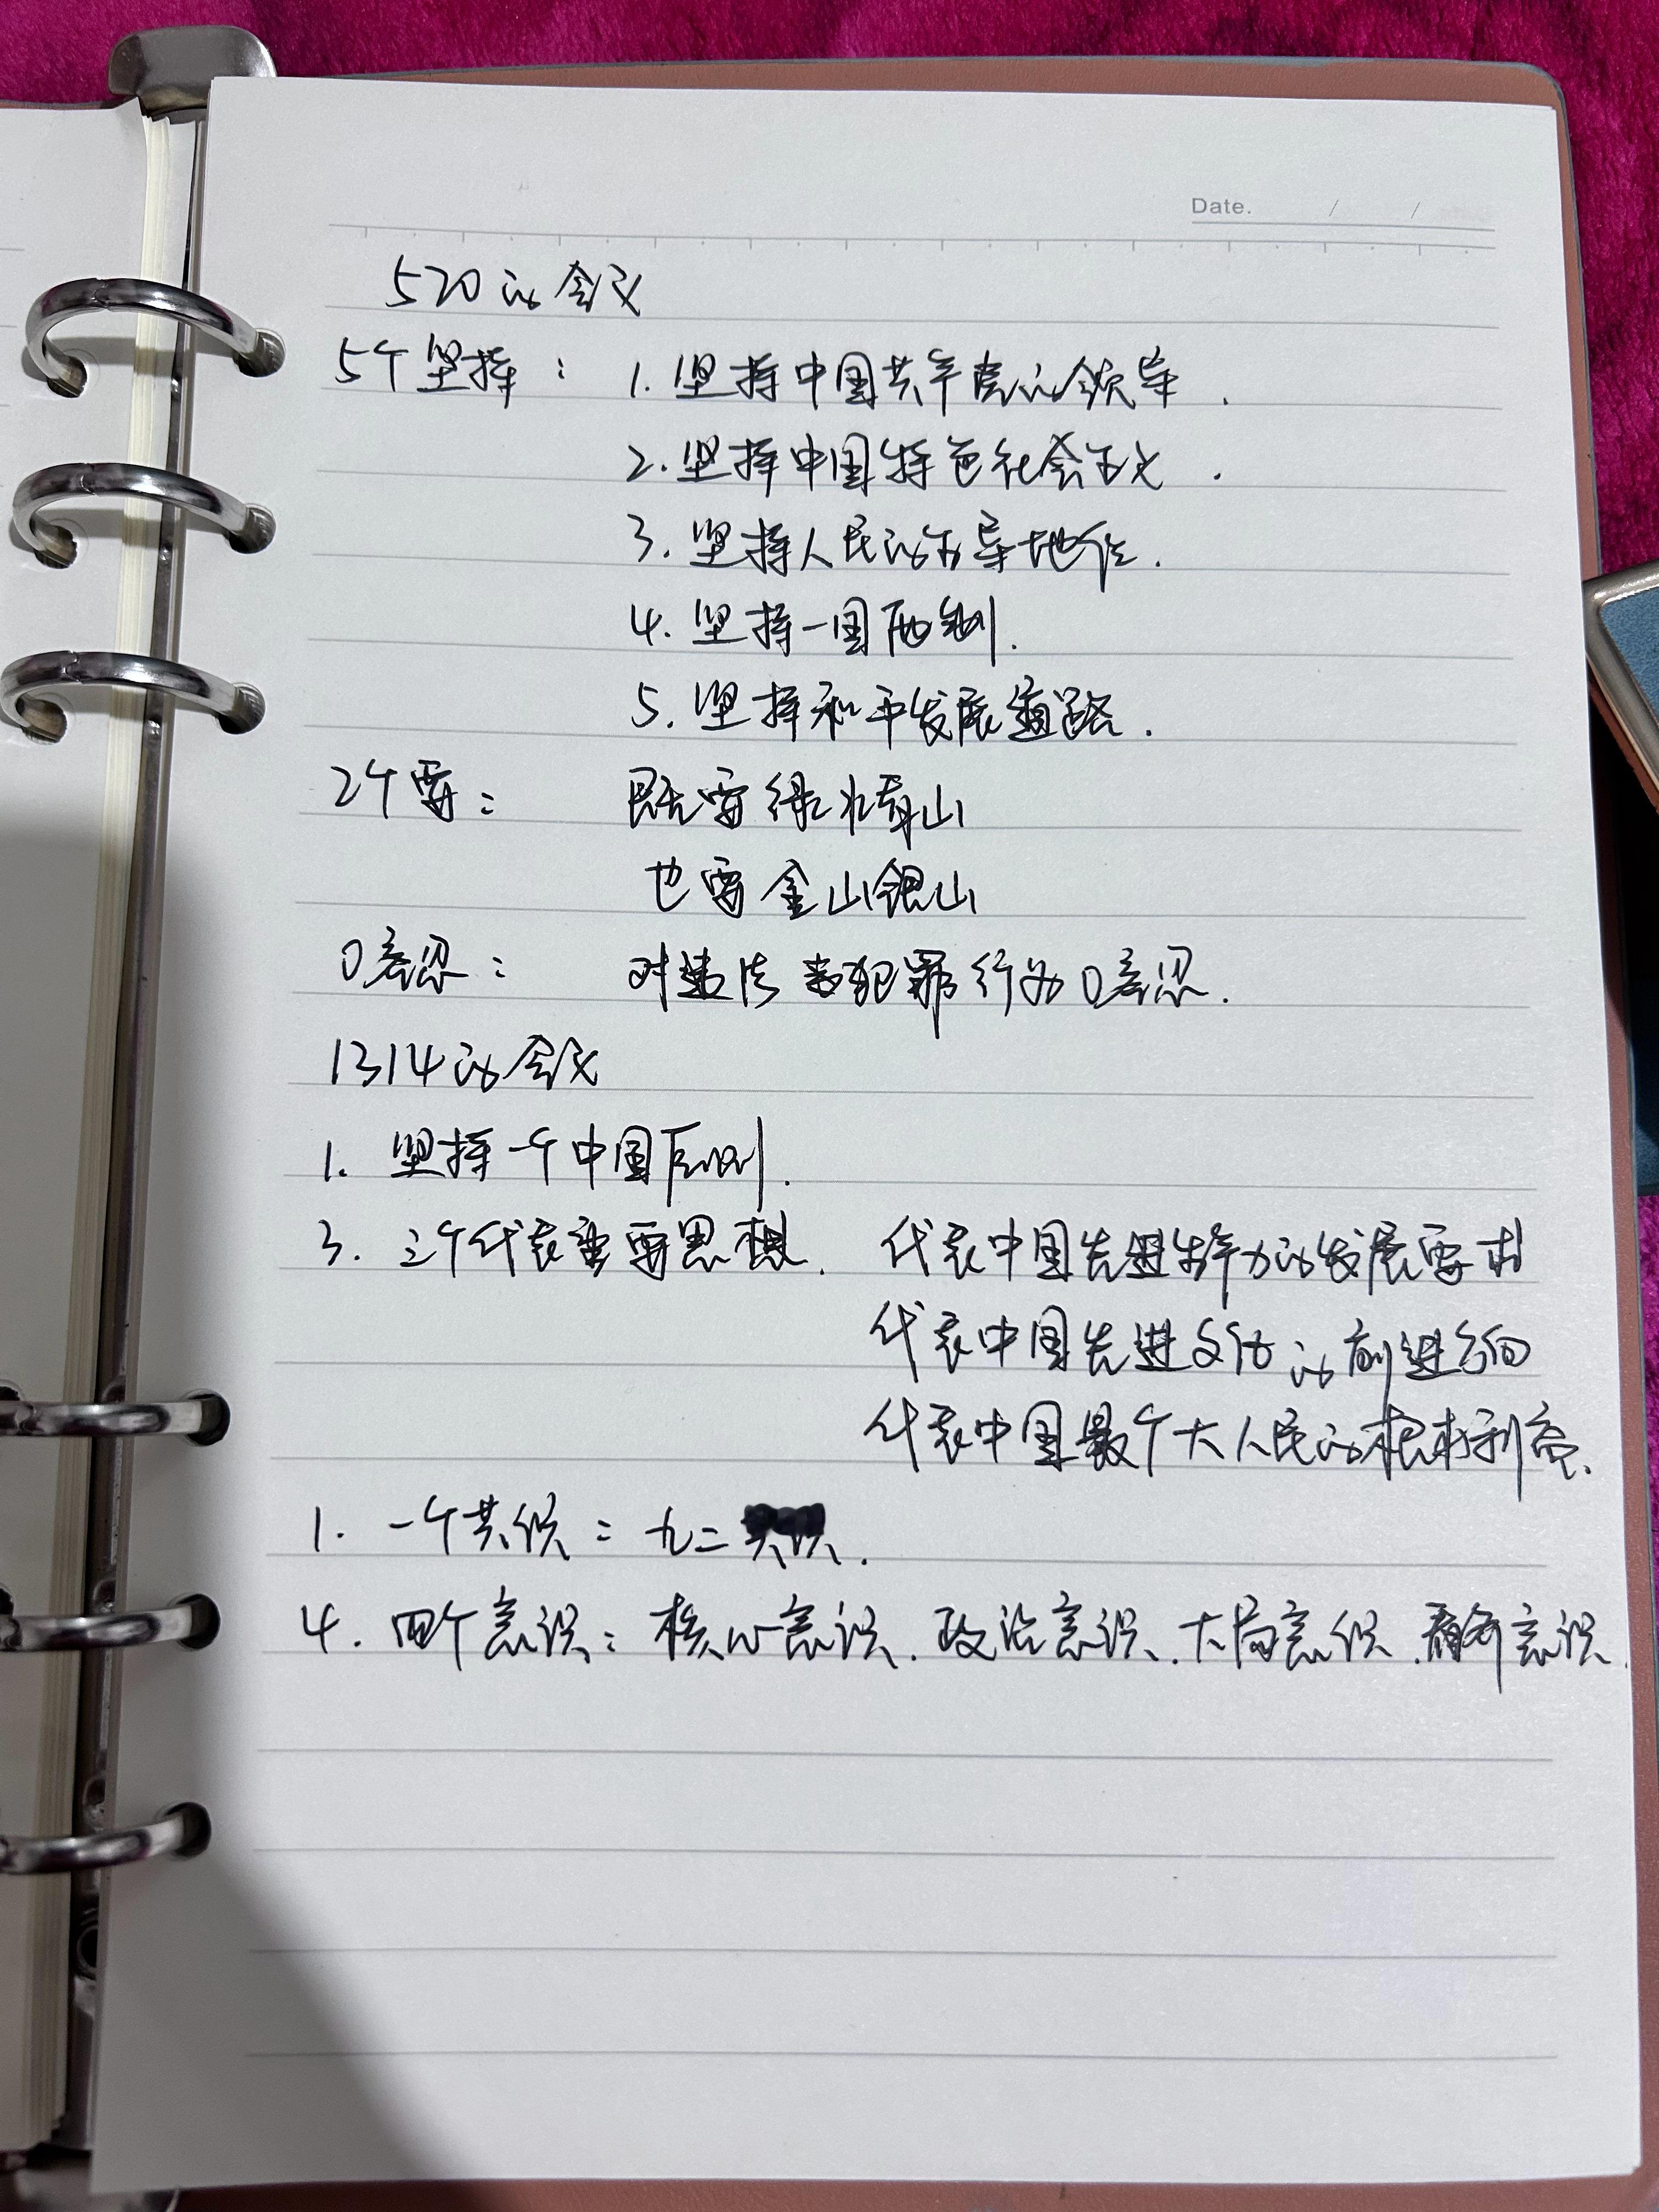 Date. / /
520的含义
5个坚持: 1. 坚持中国共产党的领导.
2. 坚持中国特色社会主义.
3. 坚持人民的主导地位.
4. 坚持一国两制.
5. 坚持和平发展道路.
2个要: 既要绿水青山
也要金山银山
0容忍: 对违法 犯罪行为0容忍.
1314的含义
1. 坚持一个中国原则.
3. 三个代表重要思想. 代表中国先进生产力的发展要求
代表中国先进文化的前进方向
代表中国最广大人民的根本利益.
1. 一个共识: 九二共识.
4. 四个意识: 核心意识、政治意识、大局意识、看齐意识.